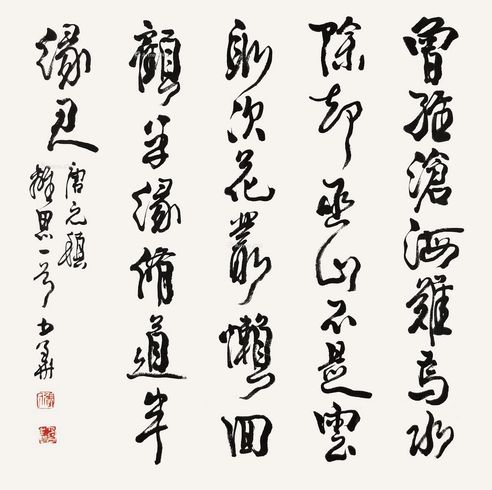 曾經滄海難為水
除却巫山不是雲
取次花叢懶回
顧半緣修道半
緣君
唐元稹
離思一首